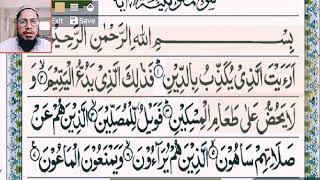 Exit Save
بِسْمِ اللهِ الرَّحْمٰنِ الرَّحِيْمِ
اَرَءَيْتَ الَّذِيْ يُكَذِّبُ بِالدِّيْنِ ۝ فَذٰلِكَ الَّذِيْ يَدُعُّ الْيَتِيْمَ ۝ وَ
لَا يَحُضُّ عَلٰى طَعَامِ الْمِسْكِيْنِ ۝ فَوَيْلٌ لِّلْمُصَلِّيْنَ ۝ الَّذِيْنَ هُمْ عَنْ
صَلَاتِهِمْ سَاهُوْنَ ۝ الَّذِيْنَ هُمْ يُرَآءُوْنَ ۝ وَيَمْنَعُوْنَ الْمَاعُوْنَ ۝